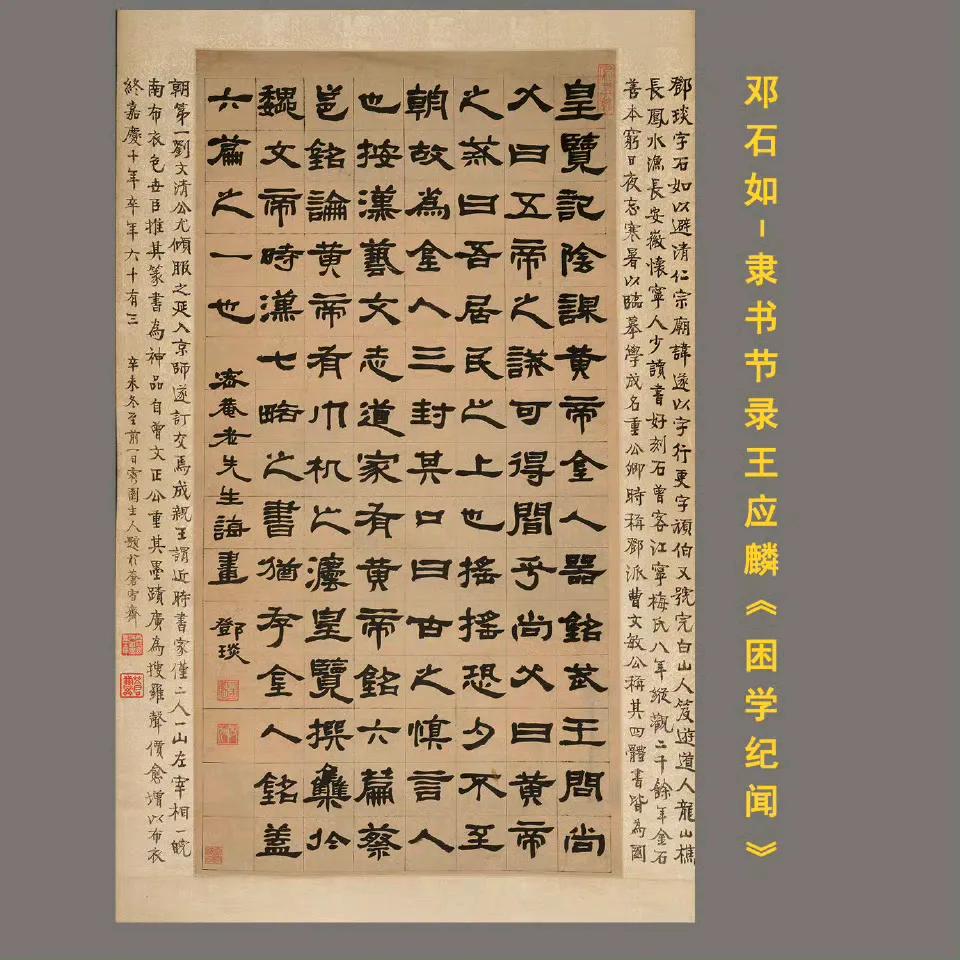 邓石如-隶书节录王应麟《困学纪闻》
鄧琰字石如以避清仁宗廟諱遂以字行更字頑伯又號完白山人笈遊道人龍山樵
長鳳水漁長安徽懷寧人少讀書好刻石曾客江寧梅氏八年縱觀二千餘年金石
善本窮日夜忘寒暑以臨摹學成名重公卿時稱鄧派曹文敏公稱其四體書皆為國
皇覽記陰謀黃帝金人器銘武王問尚
父曰五帝之誡可得聞乎尚父曰黃帝
之戒曰吾居民之上也搖搖恐夕不至
朝故為金人三封其口曰古之慎言人
也按漢藝文志道家有黃帝銘六篇蔡
邕銘論黃帝有巾机之法皇覽撰集於
魏文帝時漢七略之書猶存金人銘蓋
六篇之一也
密菴老先生誨畫
鄧琰
朝第一劉文清公尤傾服之延入京師遂訂交焉成親王謂近時書家僅二人一山左宰相一皖
南布衣包世臣推其篆書為神品自曾文正公重其墨蹟廣為搜羅聲價愈增以布衣
終嘉慶十年卒年六十有三 辛未冬至前一日園主人題於蒼雪齋